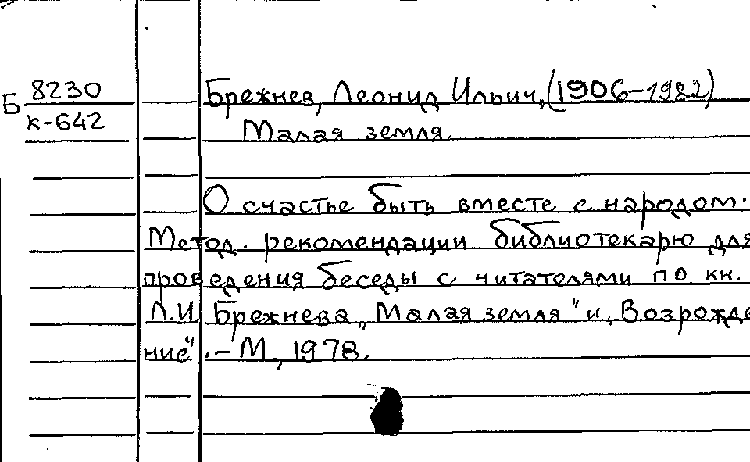 Б 8230 Брежнев, Леонид Ильич, (1906-1982)
к-642 Малая земля.
О счастье быть вместе с народом.
Метод. рекомендации библиотекарю для
проведения беседы с читателями по кн.
Л.И. Брежнева „Малая земля" и „Возрожде
ние". - М., 1978.